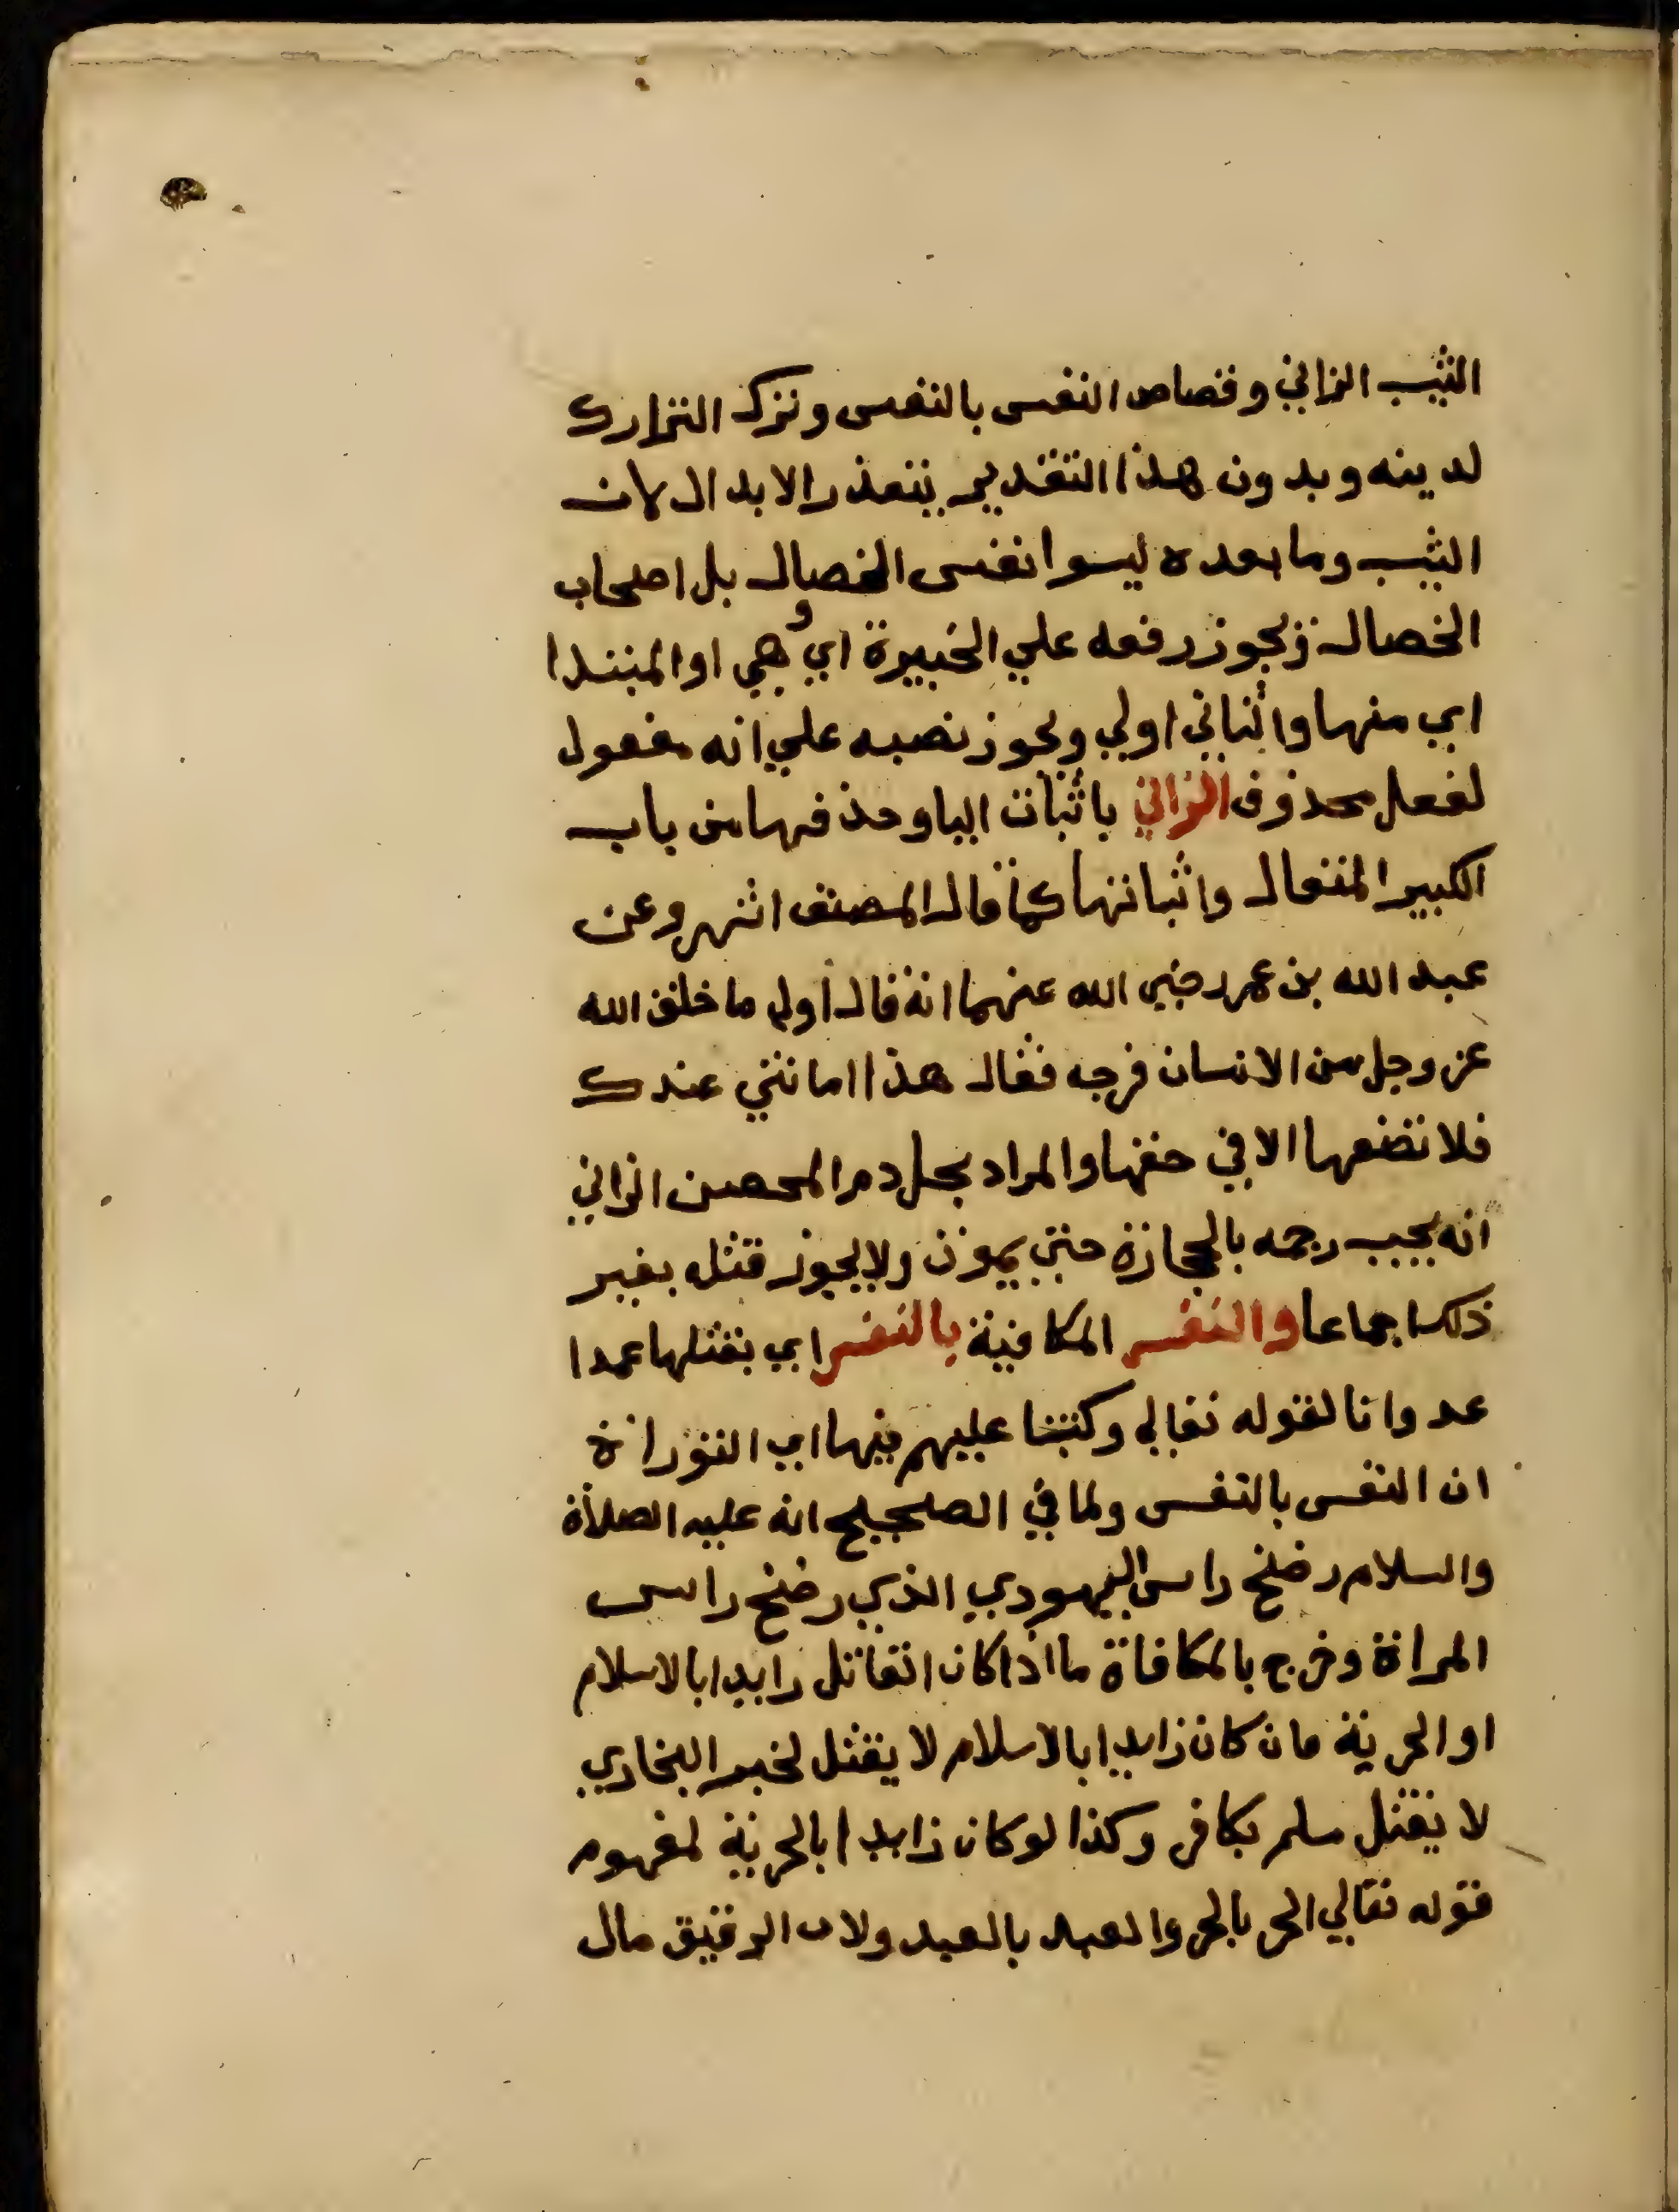 الثيب الزاني وقصاص النفس بالنفس وترك التارك
لدينه وبدون هذا التقدير يتعذر الابدال لان
الثيب وما بعده ليسوا نفس الخصال بل اصحاب
الخصال ويجوز رفعه علي الخبرية اي وهي او المبتدا
اي منها والثاني اولي ويجوز نصبه علي انه مفعول
لفعل محذوف الزاني باثبات اليا وحذفها من باب
الكبير المتعال واثباتها كما قال المصنف اشهر وعن
عبد الله بن عمر رضي الله عنهما انه قال اول ما خلق الله
عز وجل من الانسان فرجه فقال هذا امانتي عندك
فلا تضعها الا في حقها والمراد بحل دم المحصن الزاني
انه يجب رجمه بالحجارة حتي يموت ولا يجوز قتله بغير
ذلك اجماعا والنفس المكافية بالنفس اي بقتلها عمدا
عدوانا لقوله تعالي وكتبنا عليهم فيها اي التوراة
ان النفس بالنفس ولما في الصحيح انه عليه الصلاة
والسلام رضخ راس اليهودي الذي رضخ راس
المراة وخرج بالمكافاة ما اذا كان القاتل زايدا بالاسلام
او الحرية فان كان زايدا بالاسلام لا يقتل لخبر البخاري
لا يقتل مسلم بكافر وكذا لو كان زايدا بالحرية لمفهوم
قوله تعالي الحر بالحر والعبد بالعبد ولان الرقيق مال